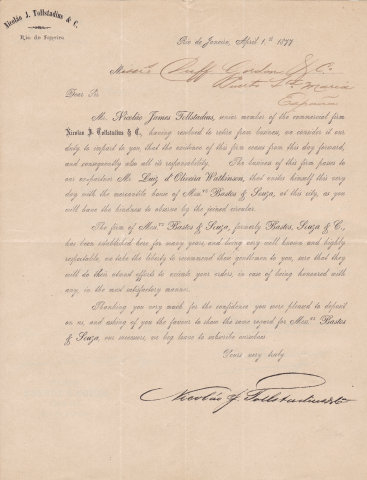 Nicoláo J. Tollstadius & C.
Rio de Janeiro
Rio de Janeiro, April 1.st 1877
Messrs Duff Gordon & C.
Puerto Sta Maria
Espana
Dear Sr.
Mr. Nicoláo James Tollstadius, never member of the commercial firm
Nicoláo J. Tollstadius & C., having resolved to retire from business, we consider it our
duty to impart to you, that the existence of this firm ceases from this day forward,
and consequently also all its responsability. The business of this firm passes to
our co-partner Mr. Luiz d'Oliveira Watkinson, that unites himself this very
day with the mercantile house of Messrs Bastos & Souza, at this city, as you
will have the kindness to observe by the joined circular.
The firm of Messrs Bastos & Souza, formerly Bastos, Souza & C.,
has been established here for many years, and being very well known and highly
respectable, we take the liberty to recommend these gentlemen to you, sure that they
will do their utmost efforts to execute your orders, in case of being honoured with
any, in the most satisfactory manner.
Thanking you very much for the confidence you were pleased to deposit
on us, and asking of you the favour to show the same regard for Messrs Bastos
& Souza, our successors, we beg leave to subscribe ourselves
Yours very truly
Nicoláo J. Tollstadius